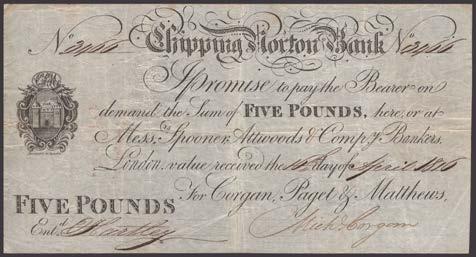 No 2466 Chipping Norton Bank No 2466
I Promise to pay the Bearer on
demand the Sum of FIVE POUNDS, here, or at
Messrs Spooner Attwoods & Compy Bankers,
London, value received the day of April 1816
For Corgan, Paget & Matthews,
FIVE POUNDS
Entd Hartley Michl Corgan